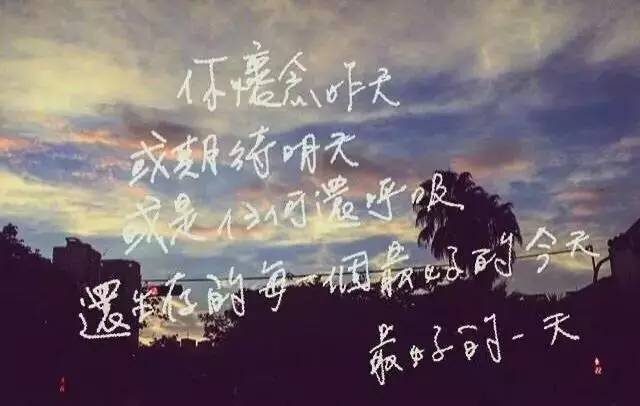 你懷念昨天
或期待明天
或是任何還呼吸
還生存的每一個最好的今天
最好的一天